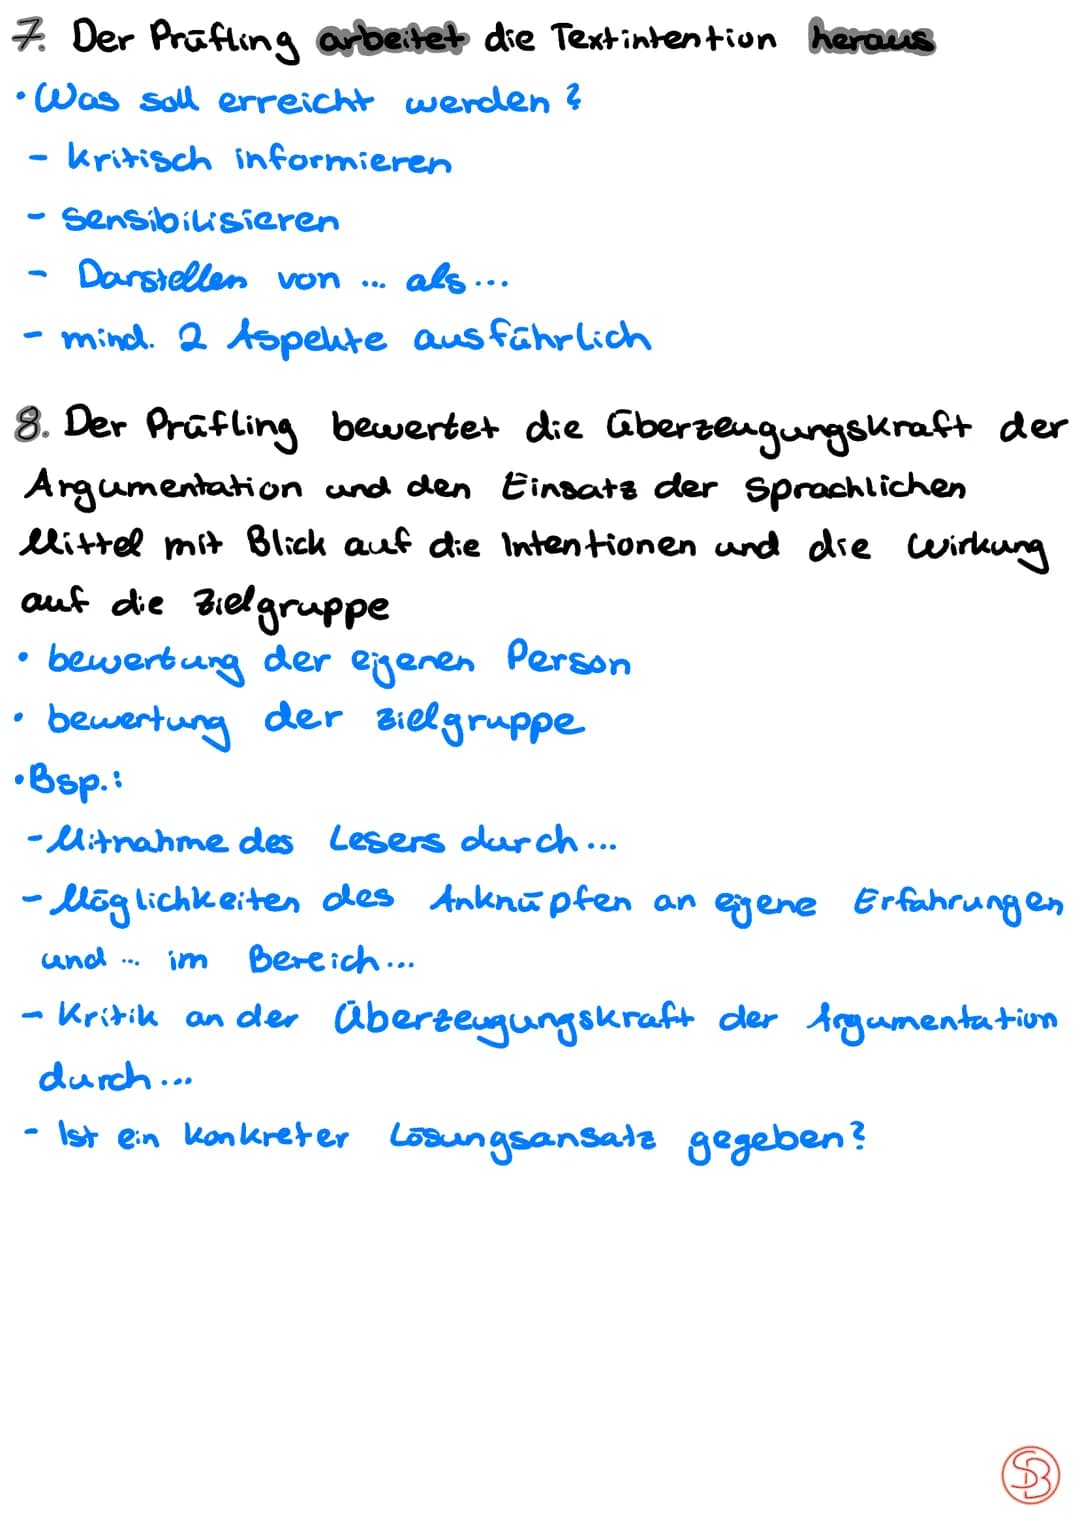 7. Der Prüfling arbeitet die Textintention heraus
• Was soll erreicht werden?
- kritisch informieren
- sensibilisieren
- Darstellen von ... als...
- mind. 2 Aspekte ausführlich
8. Der Prüfling bewertet die Überzeugungskraft der
Argumentation und den Einsatz der sprachlichen
Mittel mit Blick auf die Intentionen und die Wirkung
auf die Zielgruppe
• bewertung der eigenen Person
• bewertung der Zielgruppe
• Bsp.:
- Mitnahme des Lesers durch...
- Möglichkeiten des Anknüpfen an eigene Erfahrungen
und ... im Bereich...
- Kritik an der Überzeugungskraft der Argumentation
durch...
- Ist ein konkreter Lösungsansatz gegeben?
SB